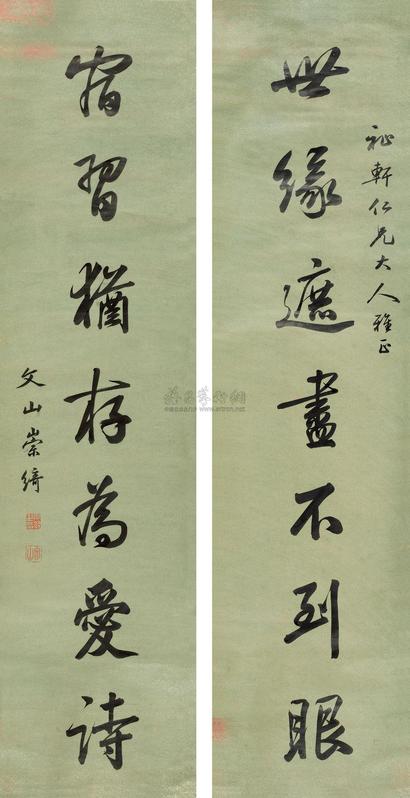 祉軒仁兄大人雅正
世緣遮盡不到眼
宿習猶存為愛詩
文山崇綺